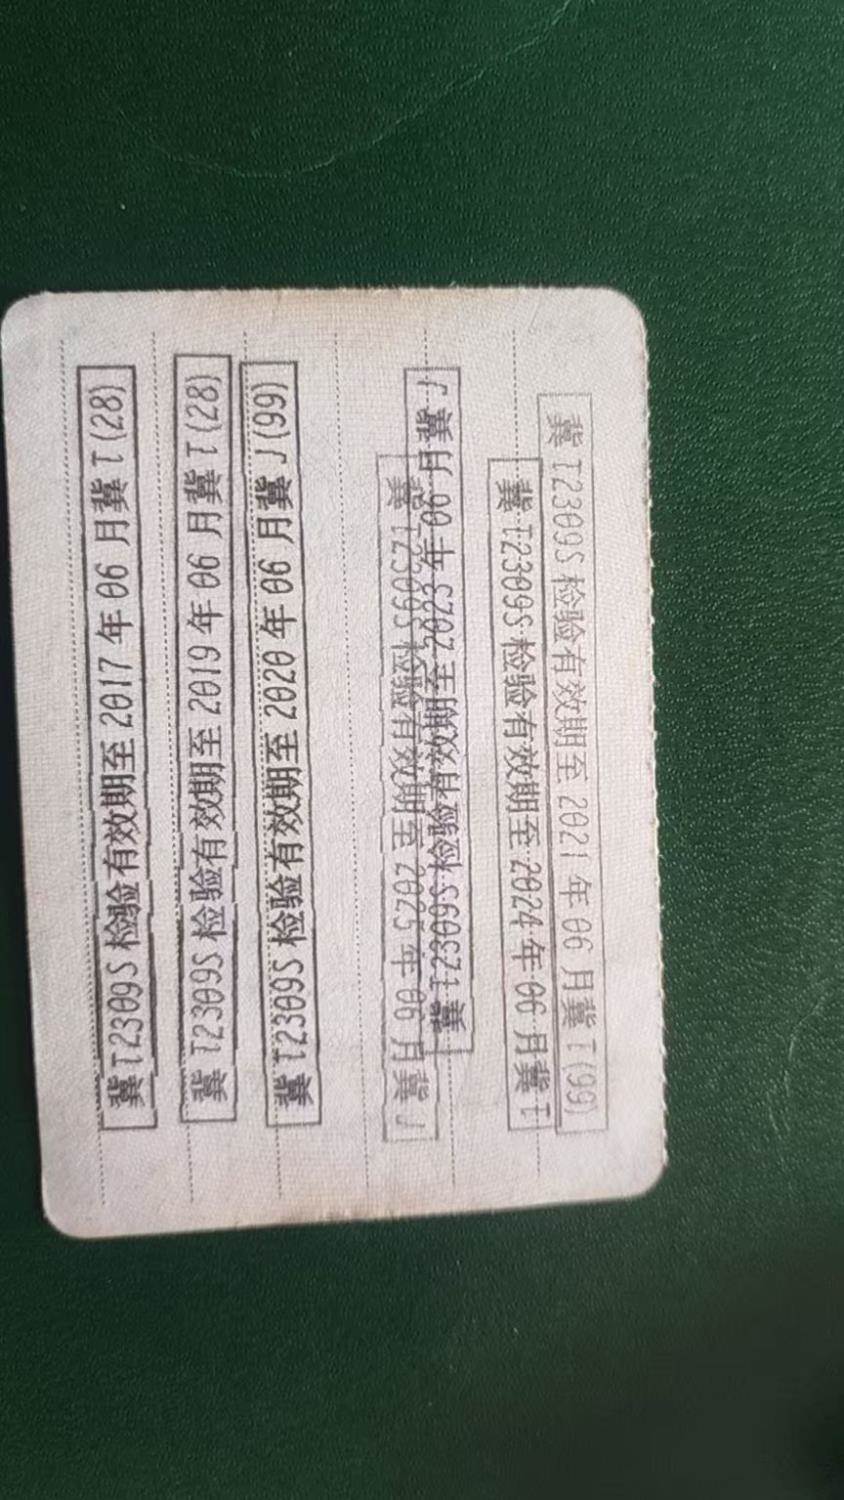 冀T2309S检验有效期至2017年06月冀T(28)
冀T2309S检验有效期至2019年06月冀T(28)
冀T2309S检验有效期至2020年06月冀J(99)
冀T2309S检验有效期至2025年06月冀J
冀T2309S检验有效期至2023年06月冀J
冀T2309S检验有效期至2024年06月冀T
冀T2309S检验有效期至2021年06月冀T(99)